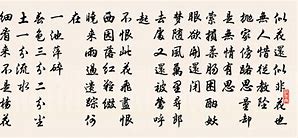 似花還似非花也
無人惜從教墜
拋家傍路思量却
是無情有思縈
損柔腸困酣嬌
眼欲開還閉
夢隨風萬里尋郎
去處又還被鶯呼
起
不恨此花飛盡恨
西園落紅難綴
曉來雨過遺踪何
在
一池萍碎
春色三分二分塵
土一分流水
細看來不是楊花